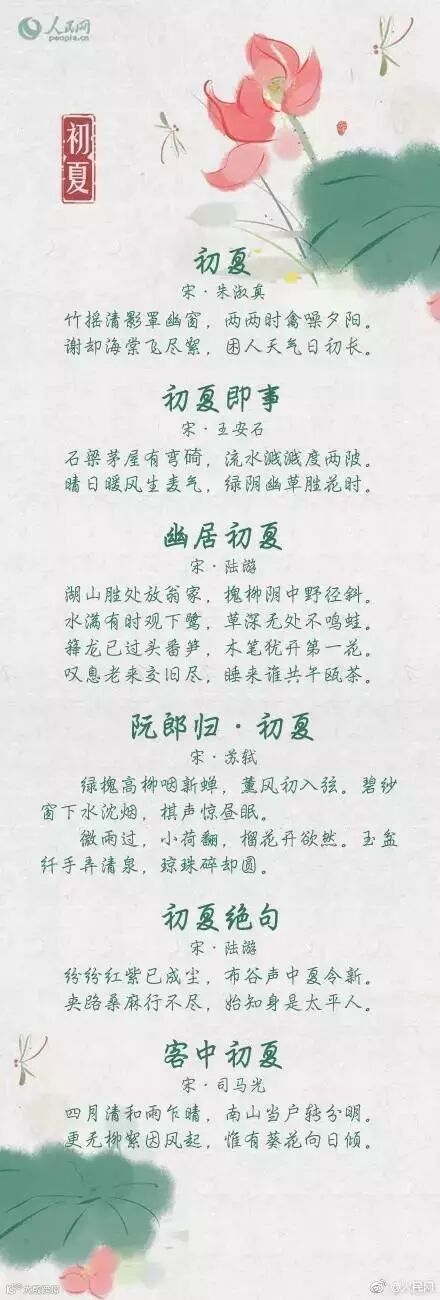 人民网
people.cn
初夏
初夏
宋·朱淑真
竹摇清影罩幽窗，两两时禽噪夕阳。
谢却海棠飞尽絮，困人天气日初长。
初夏即事
宋·王安石
石梁茅屋有弯碕，流水溅溅度两陂。
晴日暖风生麦气，绿阴幽草胜花时。
幽居初夏
宋·陆游
湖山胜处放翁家，槐柳阴中野径斜。
水满有时观下鹭，草深无处不鸣蛙。
箨龙已过头番笋，木笔犹开第一花。
叹息老来交旧尽，睡来谁共午瓯茶。
阮郎归·初夏
宋·苏轼
绿槐高柳咽新蝉，薰风初入弦。碧纱
窗下水沈烟，棋声惊昼眠。
微雨过，小荷翻，榴花开欲然。玉盆
纤手弄清泉，琼珠碎却圆。
初夏绝句
宋·陆游
纷纷红紫已成尘，布谷声中夏令新。
夹路桑麻行不尽，始知身是太平人。
客中初夏
宋·司马光
四月清和雨乍晴，南山当户转分明。
更无柳絮因风起，惟有葵花向日倾。
@人民网